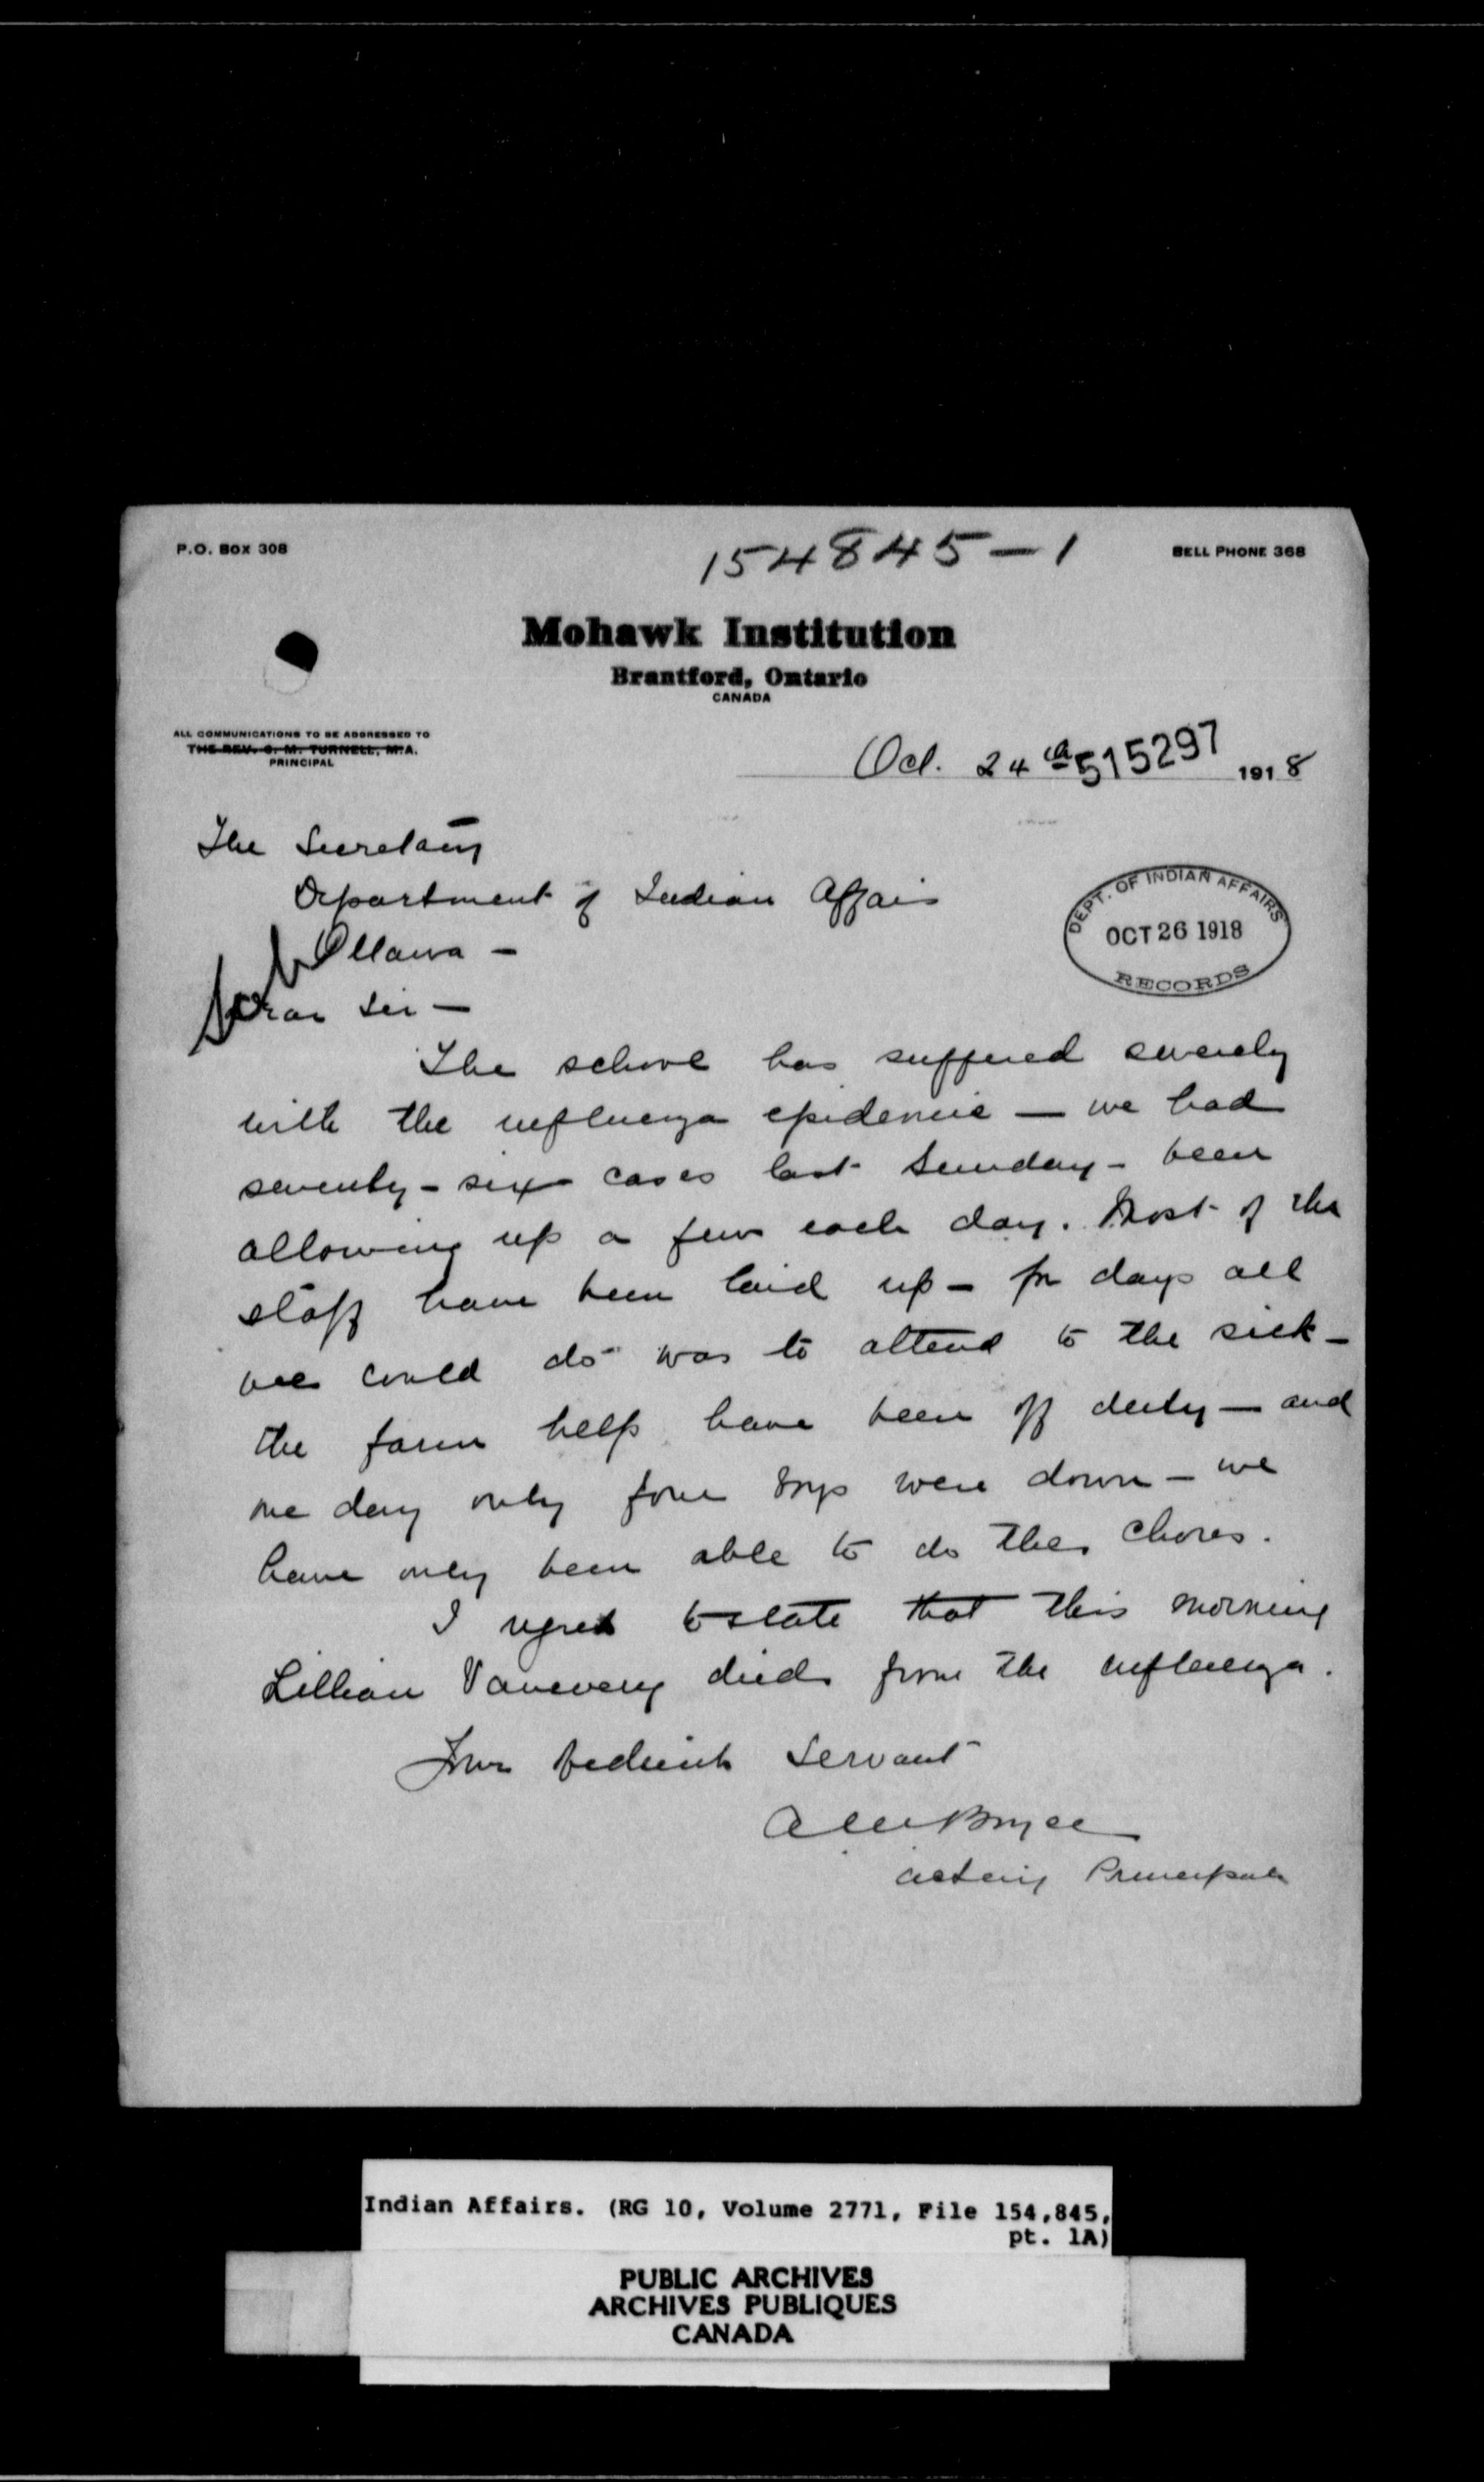 P.O. BOX 308
154845-1
BELL PHONE 368
Mohawk Institution
Brantford, Ontario
CANADA
ALL COMMUNICATIONS TO BE ADDRESSED TO
THE REV. C. M. TURNELL, M.A.
PRINCIPAL
Oct. 24th 515297 1918
The Secretary
Department of Indian Affairs
Ottawa -
DEPT. OF INDIAN AFFAIRS
OCT 26 1918
RECORDS
Dear Sir -
The school has suffered severely
with the influenza epidemic - we had
seventy-six cases last Sunday - been
allowing up a few each day. Most of the
staff have been laid up - for days all
we could do was to attend to the sick -
the farm help have been off duty - and
one day only four boys were down - we
have only been able to do the chores.
I regret to state that this morning
Lillian Vanevery died from the influenza.
Your obedient Servant
Acting Principal
Indian Affairs. (RG 10, Volume 2771, File 154,845,
pt. 1A)
PUBLIC ARCHIVES
ARCHIVES PUBLIQUES
CANADA